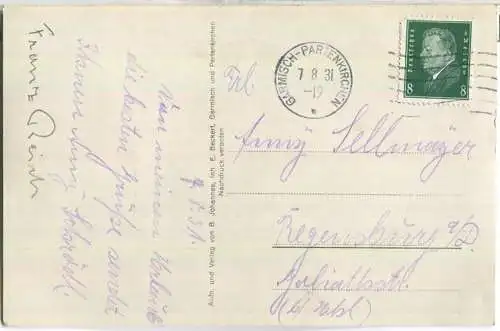 Franz Reich
7.8.31.
Von meinem Urlaub
die besten Grüße sendet
Ihnen
Aufn. und Verlag von B. Johannes, Inh. E. Beckert, Garmisch und Partenkirchen
Nachdruck verboten
GARMISCH-PARTENKIRCHEN
7 8 31
-19
DEUTSCHES REICH
8 8
Frl.
Amy Sellmayer
Regensburg a/D.
Goliathstr.